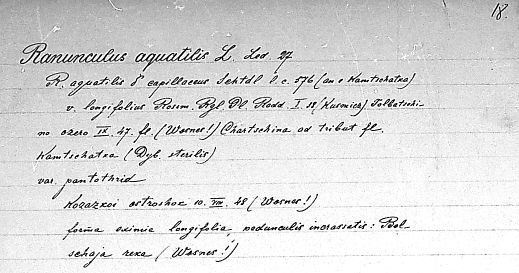 18.
Ranunculus aquatilis L. Led. 27
R. aquatilis δ capillaceus Schtdl l. c. 576 (an e Kamtschatka)
v. longifolius Rossm. Rgl Pl Radd. I. 18 (Kusmicz) Tolbatschi-
no ozero IX 47. fl. (Wosnes!) Chartschina ad tribut fl.
Kamtschatka (Dyb. sterilis)
var. pantothrid
Kozazkoi ostroshok 10. VIII. 48 (Wosnes!)
forma eximia longifolia, pedunculis incrassatis: Bol-
schaja reka (Wosnes!)